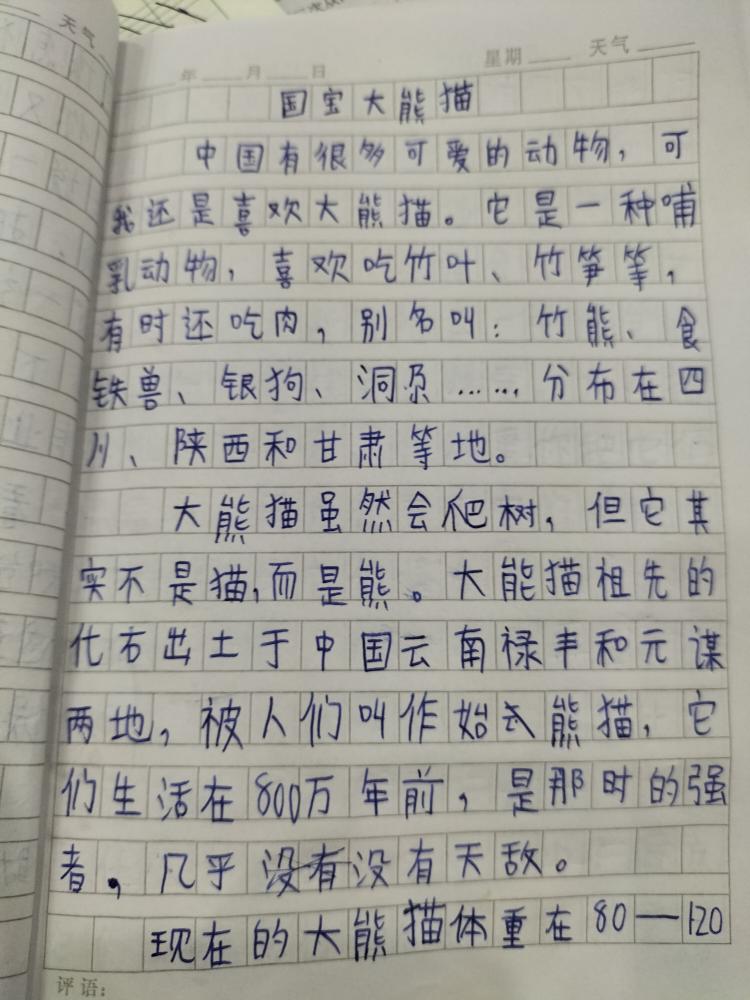 天气
年 月 日 星期 天气
国宝大熊猫
中国有很多可爱的动物，可
我还是喜欢大熊猫。它是一种哺
乳动物，喜欢吃竹叶、竹笋等，
有时还吃肉，别名叫：竹熊、食
铁兽、银狗、洞尕……分布在四
川、陕西和甘肃等地。
大熊猫虽然会爬树，但它其
实不是猫，而是熊。大能猫祖先的
化右出土于中国云南禄丰和元谋
两地，被人们叫作始式熊猫，它
们生活在800万年前，是那时的强
者，几乎没有没有天敌。
现在的大熊猫体重在80—120
评语：